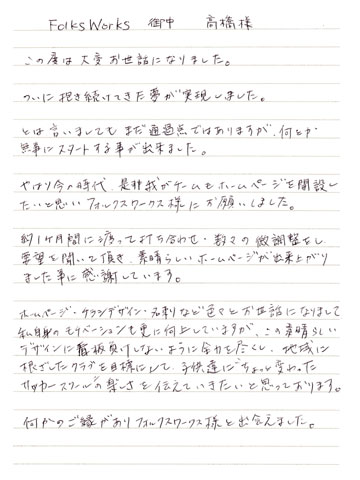 Folks Works 御中 高橋様
この度は大変お世話になりました。
ついに抱き続けてきた夢が実現しました。
とは言いましても まだ通過点ではありますが、何とか
無事にスタートする事が出来ました。
やはり今の時代、是非我がチームもホームページを開設し
たいと思い フォルクスワークス様にお願いしました。
約1ヶ月間に渡って打ち合わせ・数々の微調整をし
要望を聞いて頂き、素晴らしいホームページが出来上がり
ました事に感謝しています。
ホームページ・チラシデザイン・名刺など色々とお世話になりまして
私自身のモチベーションも更に向上していますが、この素晴らしい
デザインに看板負けしないように全力を尽くし、地域に
根ざしたクラブを目標にして、子供達にちょっと変わった
サッカースクールの楽しさを伝えていきたいと思っております。
何かのご縁があり フォルクスワークス様と出会えました。